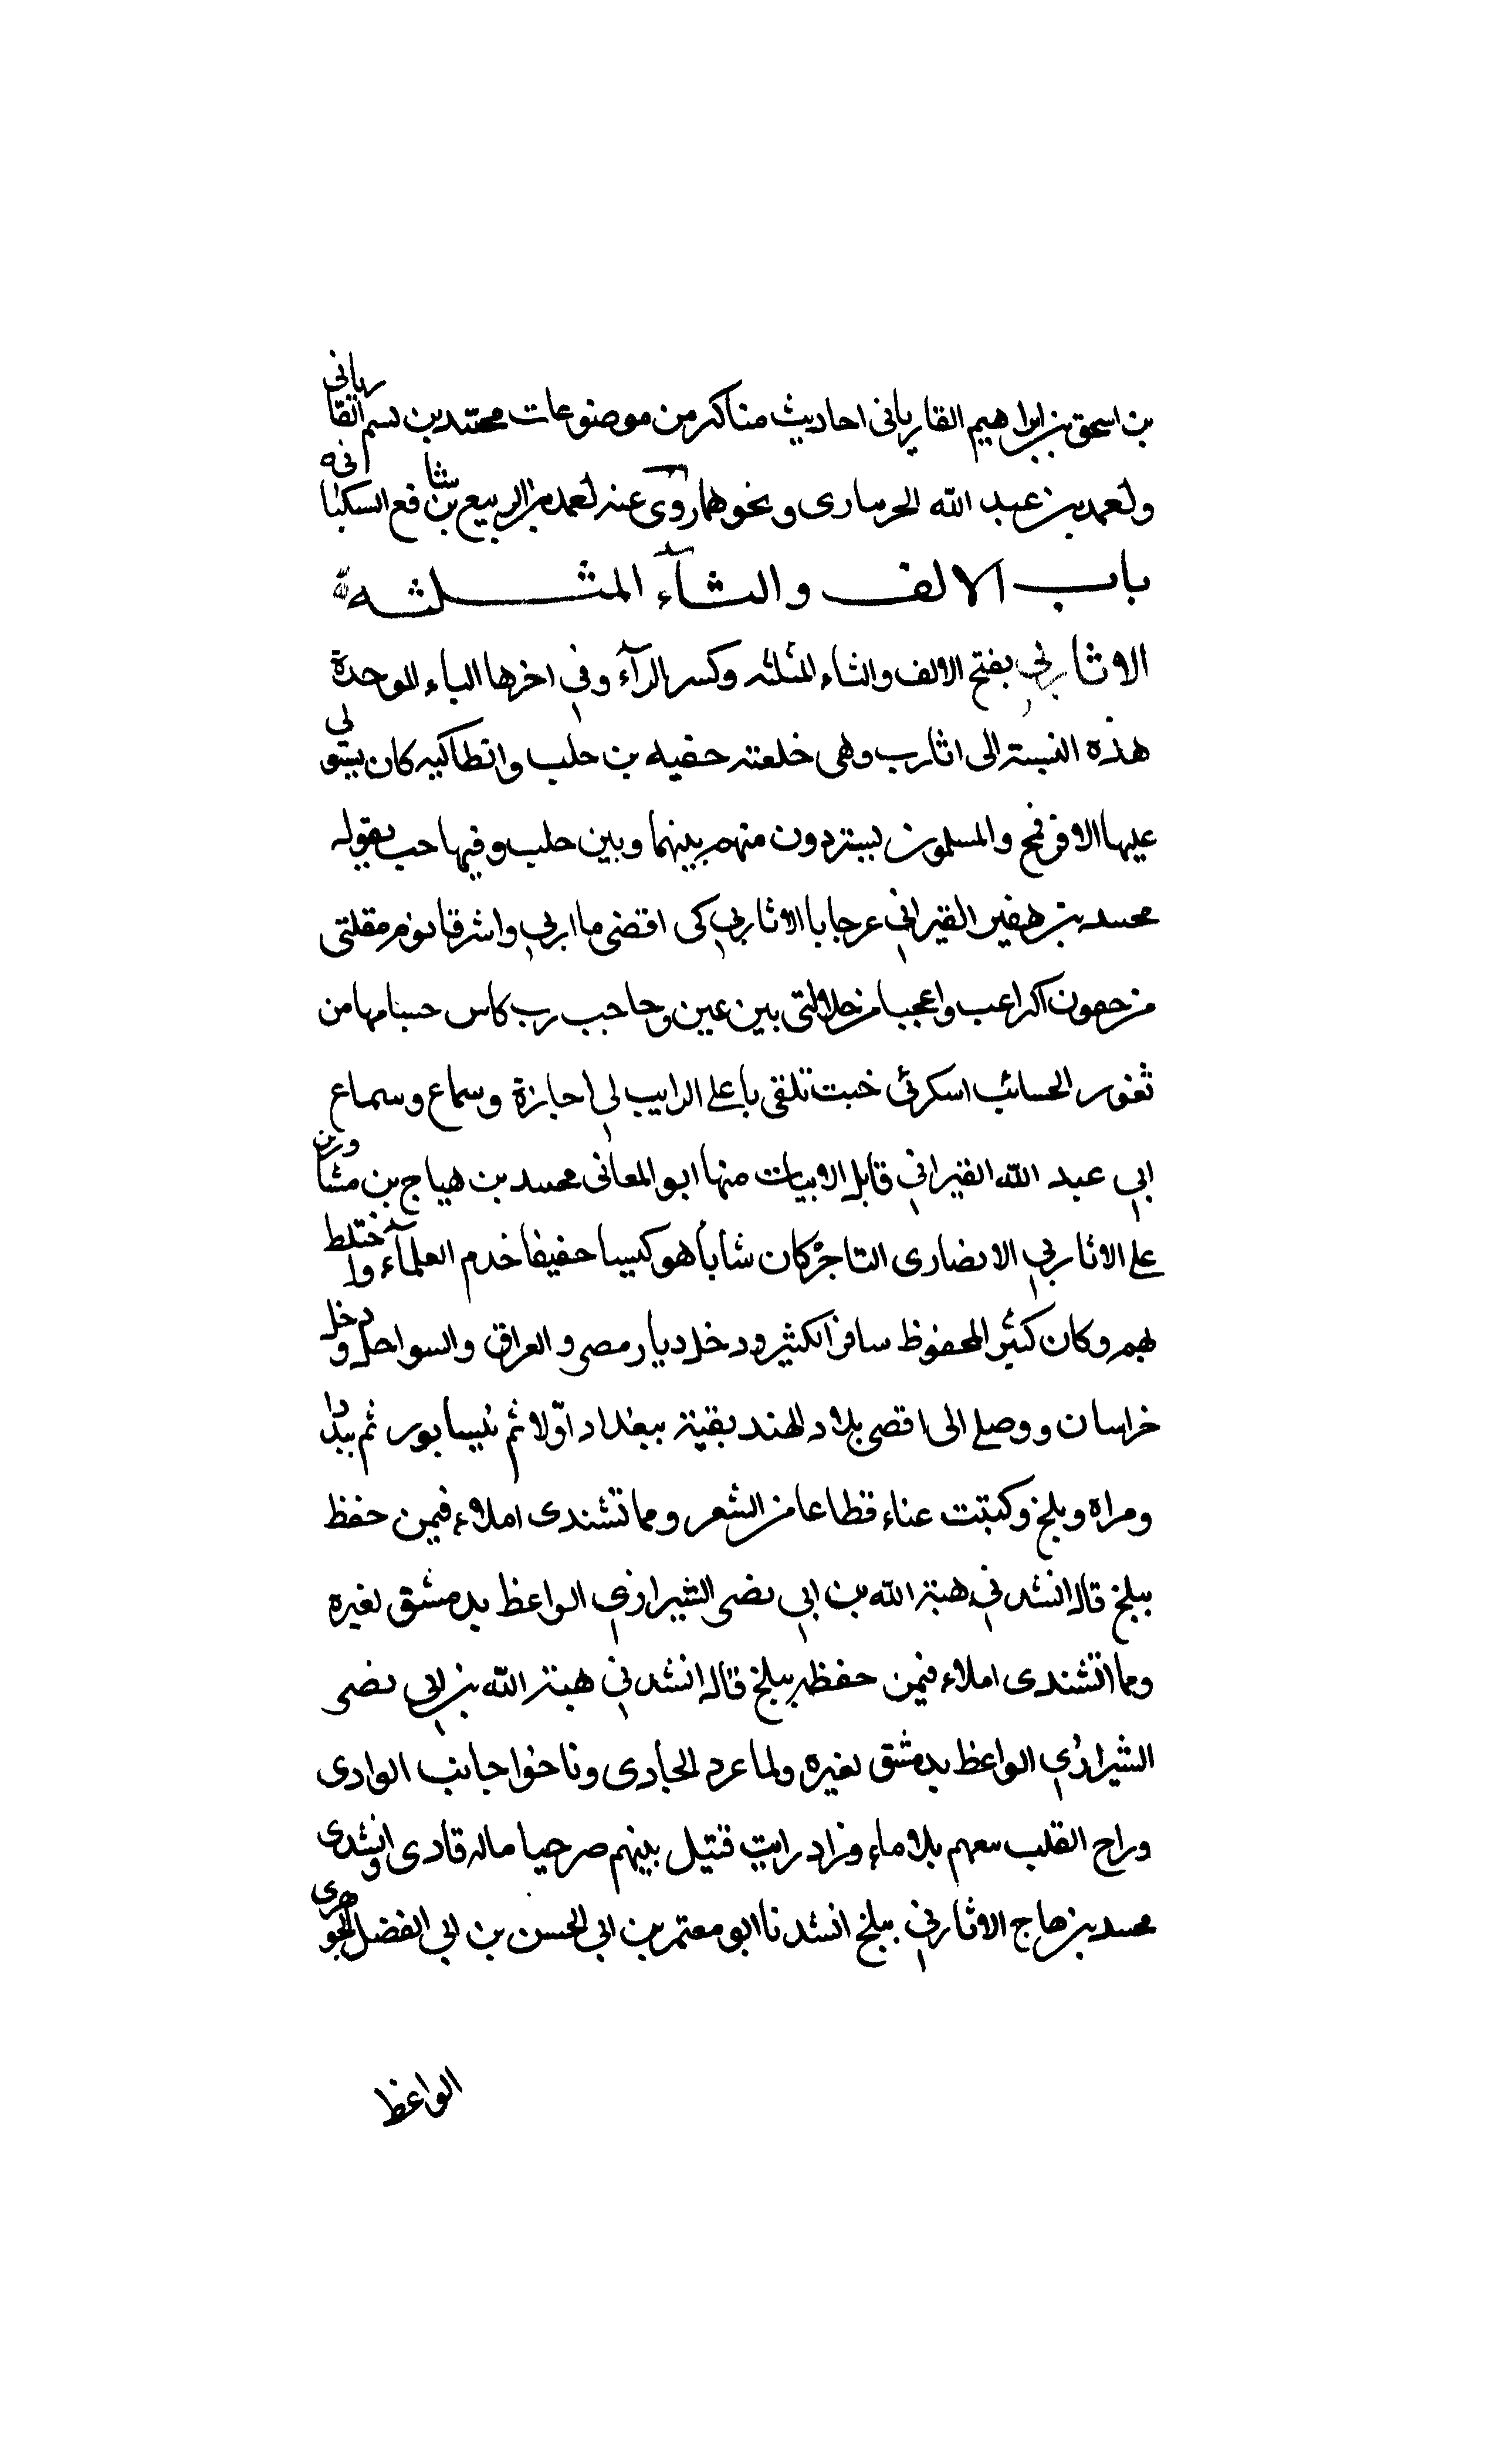 بن اسحق بن ابراهيم القاريانى احاديث مناكر من موضوعات محمد بن تسم القاريانى
ولعمد بن عبد الله الحرسارى ونحوهما روى عنه لعمد بن الربيع بن شافع السكبانى
باب الالف والثآء المثلثه
الاثاربي بفتح الالف والثاء المثلثه وكسر الرآء وفي اخرها الباء الموحدة
هذه النسبة الى اثارب وهى خلعته حفيه بن حلب وانطاكيه كان يستولي
عليها الافرنج والمسلمون يستردون منهم بينهما وبين حلب وفيها حب يقوله
محمد بن القيراني عرجا با الاثاربي كى اقضى ما اربي واشرقا نوم مقلتى
من حصون اكراعب واعجبا من خلالتى بين عين وحاحب رب كاس حسنامها من
ثغور الحسائب اسكرتى خبت تلقى باعلى الرايب لي احازة وسماع وسماع
ابي عبد الله القيراني قايل الابيات منها ابو المعانى محمد بن هياج بن مشاورن
على الاثاربي الانصارى التاجر كان شابا هو كيسا حفيفا خدم العلمآء واختلط
بهم وكان كثير المحفوظ سافر الكثير ودخل ديار مصر والعراق والسواحل ودخل
خراسان ووصل الى اقصى بلاد الهند بقية ببغداد اوّلا ثم نيسابور ثم
ومراة وبلخ وكتبت عناء قطاعا من الشعر ومما تشندى املاء فيمن حفظ
ببلخ قال انشدني هبة الله بن ابي نصر الشيرازي الواعظ بدمشق لغيره
ومما اتشندى املاء فيمن حفظه ببلخ قال انشدني هبة الله بن ابي نصر
الشيرازي الواعظ بدمشق لغيره ولما عرد الحادى وناخوا جانب الوادى
وراح القلب معهم بلا ماء وزاد رايت قتيل بينهم صرحيا ماله قادى وانشدى
محمد بن هاج الاثاربي ببلخ انشدنا ابو معتمر بن ابي الحسن بن ابي الفضل الجوهرى
الواعظ